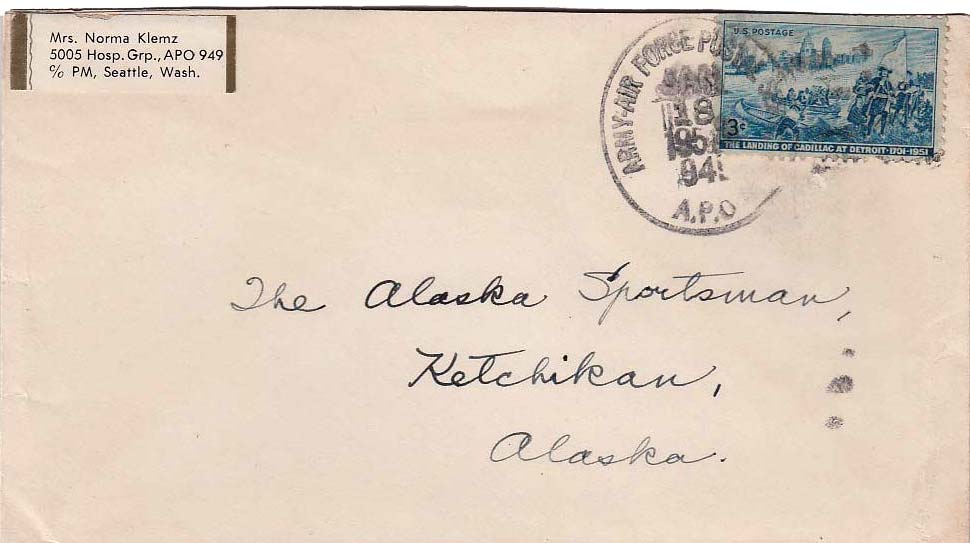 Mrs. Norma Klemz
5005 Hosp. Grp., APO 949
℅ PM, Seattle, Wash.
ARMY-AIR FORCE POSTAL
18
A.P.O
U.S. POSTAGE
3¢
THE LANDING OF CADILLAC AT DETROIT·1701-1951
The Alaska Sportsman,
Ketchikan,
Alaska.